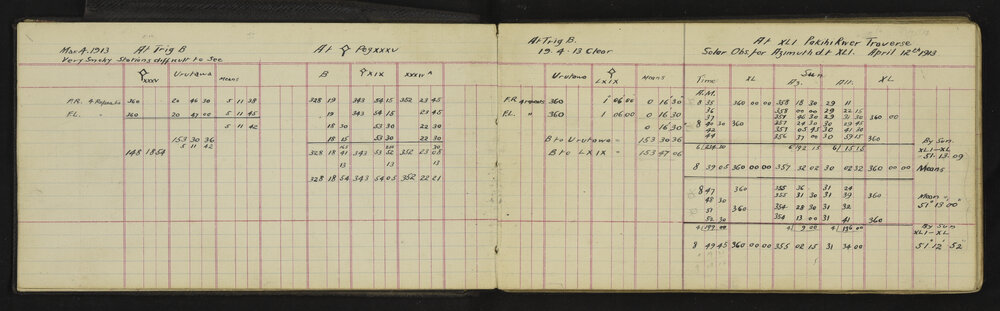 Mar. 4. 1913 At Trig B At Peg XXXV
Very Smoky Stations difficult to See
XXXV Urutawa Means B XIX XXXIV^
F.R. 4 Repeats 360 20 46 30 5 11 38 328 19 343 54 15 352 23 45
F.L. " 360 20 47 00 5 11 45 19 343 54 15 23 45
5 11 42 18 30 53 30 22 30
153 30 36 18 15 53 30 22 30
5 11 42
148 18 54 328 18 41 343 53 52 352 23 08
13 13 13
328 18 54 343 54 05 352 22 21
At Trig B.
19. 4. 13 Clear
Urutawa LXIX Means
F.R. 4 repeats 360 1° 06 00 0 16 30
F.L. " 360 1 06 00 0 16 30
0 16 30
B to Urutawa = 153 30 36
B to LXIX = 153 47 06
At XLI Pakihi River Traverse
Solar Obs. for Azimuth d.t. XLI. April 12th 1913
Time XL Sun XL
Az. Alt.
A.M.
8 35 360 00 00 358 18 30 29 11
36 358 00 00 29 22 15
37 357 46 30 29 31 30 360 00
8 40 30 360 257 24 30 30 29 45
42 357 05 45 30 41 30
44 356 37 00 30 59 15 360
6/234 30 6/192 15 6/15 15 By Sun
XLI–XL
51. 13. 09
8 39 05 360 00 00 357 32 02 30 02 32 360 00 00 Means
8 47 360 355 36 31 24
48 30 355 31 30 31 39 360 Mean =
51 360 354 28 30 31 32 51° 13' 00"
52 30 354 13 00 31 41 360
4/199 00 4/9 00 4/136 00 By Sun
XLI–XL
8 49 45 360 00 00 355 02 15 31 34 00 51° 12' 52"